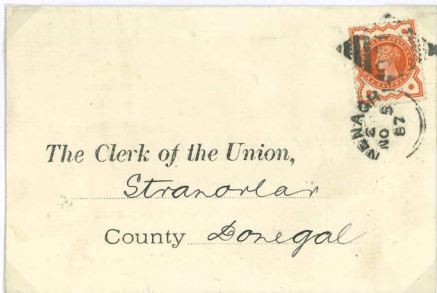 NENAGH
E
NO 5
87
The Clerk of the Union,
Stranorlar
County Donegal